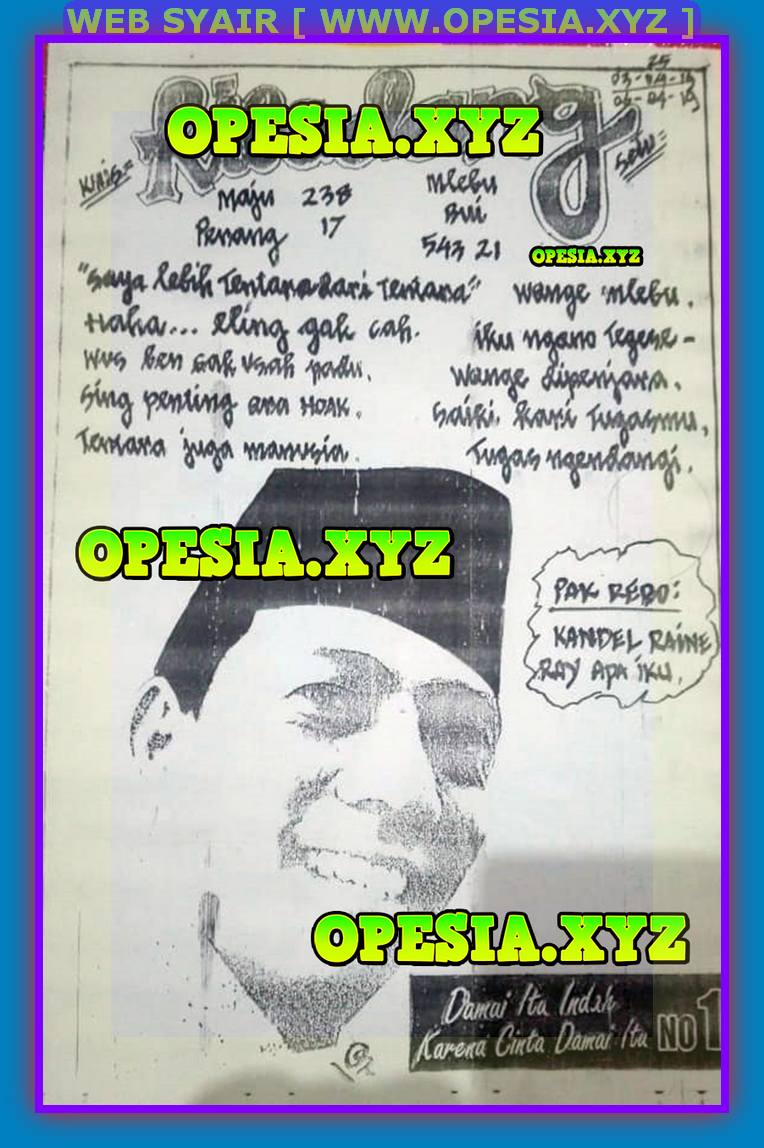 WEB SYAIR [ WWW.OPESIA.XYZ ]
25
03-04-19
04-04-19
OPESIA.XYZ
KMIS=
SENI=
Maju 238
Penang 17
Mlebu
Bui
543 21
OPESIA.XYZ
"Saya lebih Tentara dari Tentara"
Haha... eling gak cah.
Wus ben gak usah padu.
Sing penting ana HOAK.
Tentara juga manusia.
wange mlebu.
iku ngono Tegese-
wange dipenjara.
Saiki kari Tugasmu,
Tugas ngendangi.
OPESIA.XYZ
PAK REBO:
KANDEL RAINE
RAY APA IKU.
OPESIA.XYZ
Damai Itu Indah
Karena Cinta Damai Itu NO 1